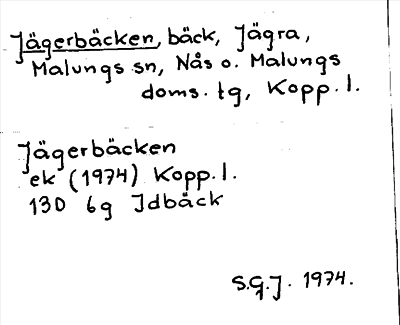 Jägerbäcken, bäck, Jägra,
Malungs sn, Nås o. Malungs
doms. tg, Kopp. l.
Jägerbäcken
ek (1974) Kopp. l.
130 6g Idbäck
S.G.J. 1974.